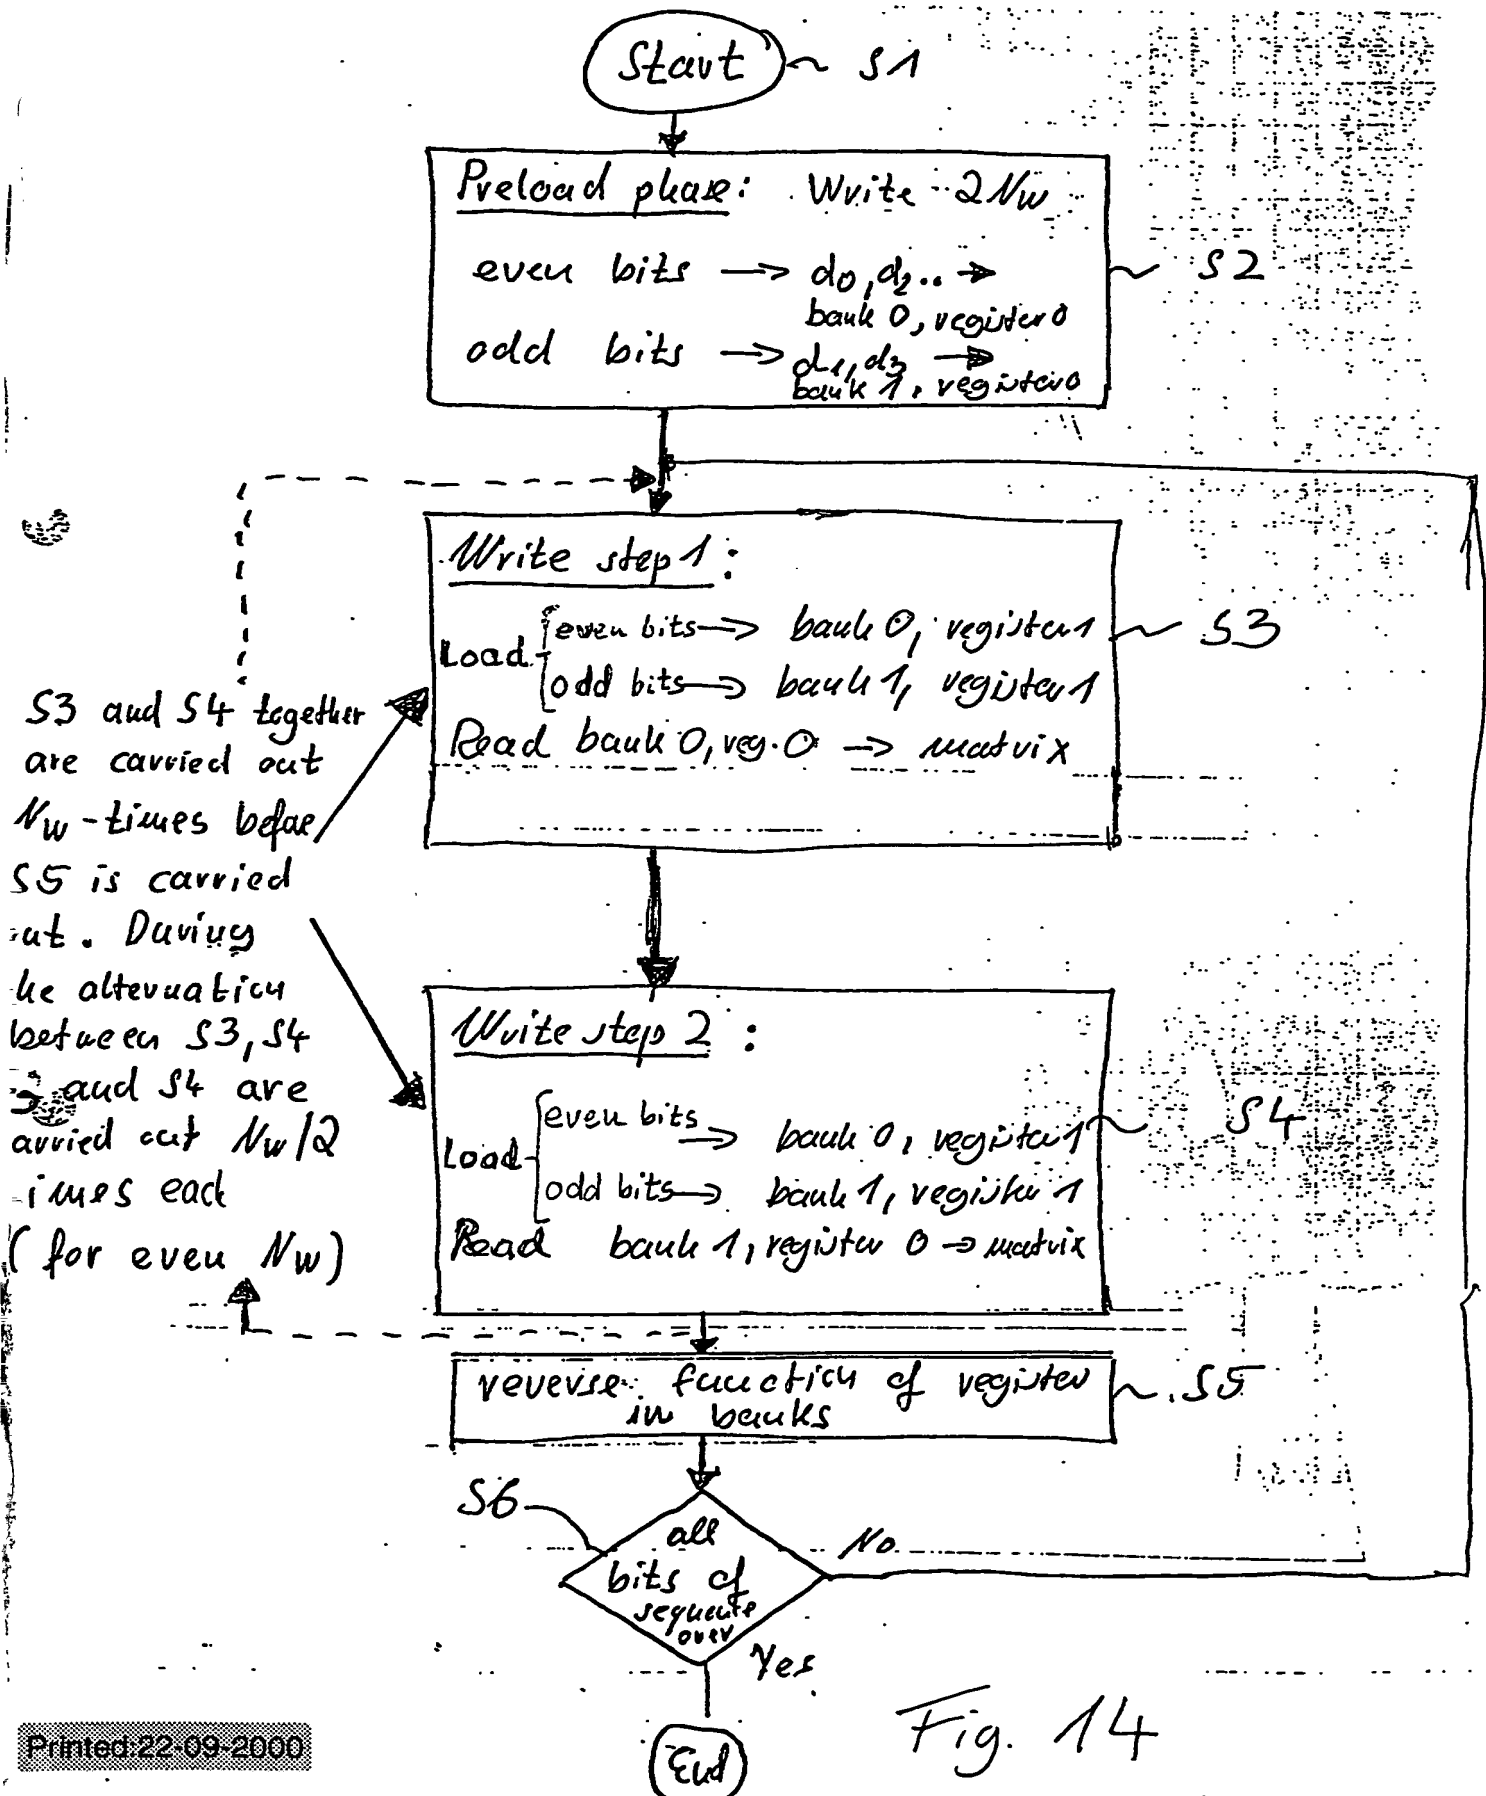 Start S1
Preload phase: Write 2Nw
even bits → d0, d2.. →
bank 0, register 0
S2
odd bits → d1, d3 →
bank 1, register 0
Write step 1:
Load
even bits → bank 0, register 1
odd bits → bank 1, register 1
S3
Read bank 0, reg. 0 → matrix
S3 and S4 together
are carried out
Nw-times before
S5 is carried
ut. During
he alternation
between S3, S4
and S4 are
arried out Nw/2
imes each
(for even Nw)
Write step 2:
Load
even bits → bank 0, register 1
odd bits → bank 1, register 1
S4
Read bank 1, register 0 → matrix
reverse function of register
in banks
S5
S6
all
bits of
sequence
over
No
Yes
End
Fig. 14
Printed:22-09-2000